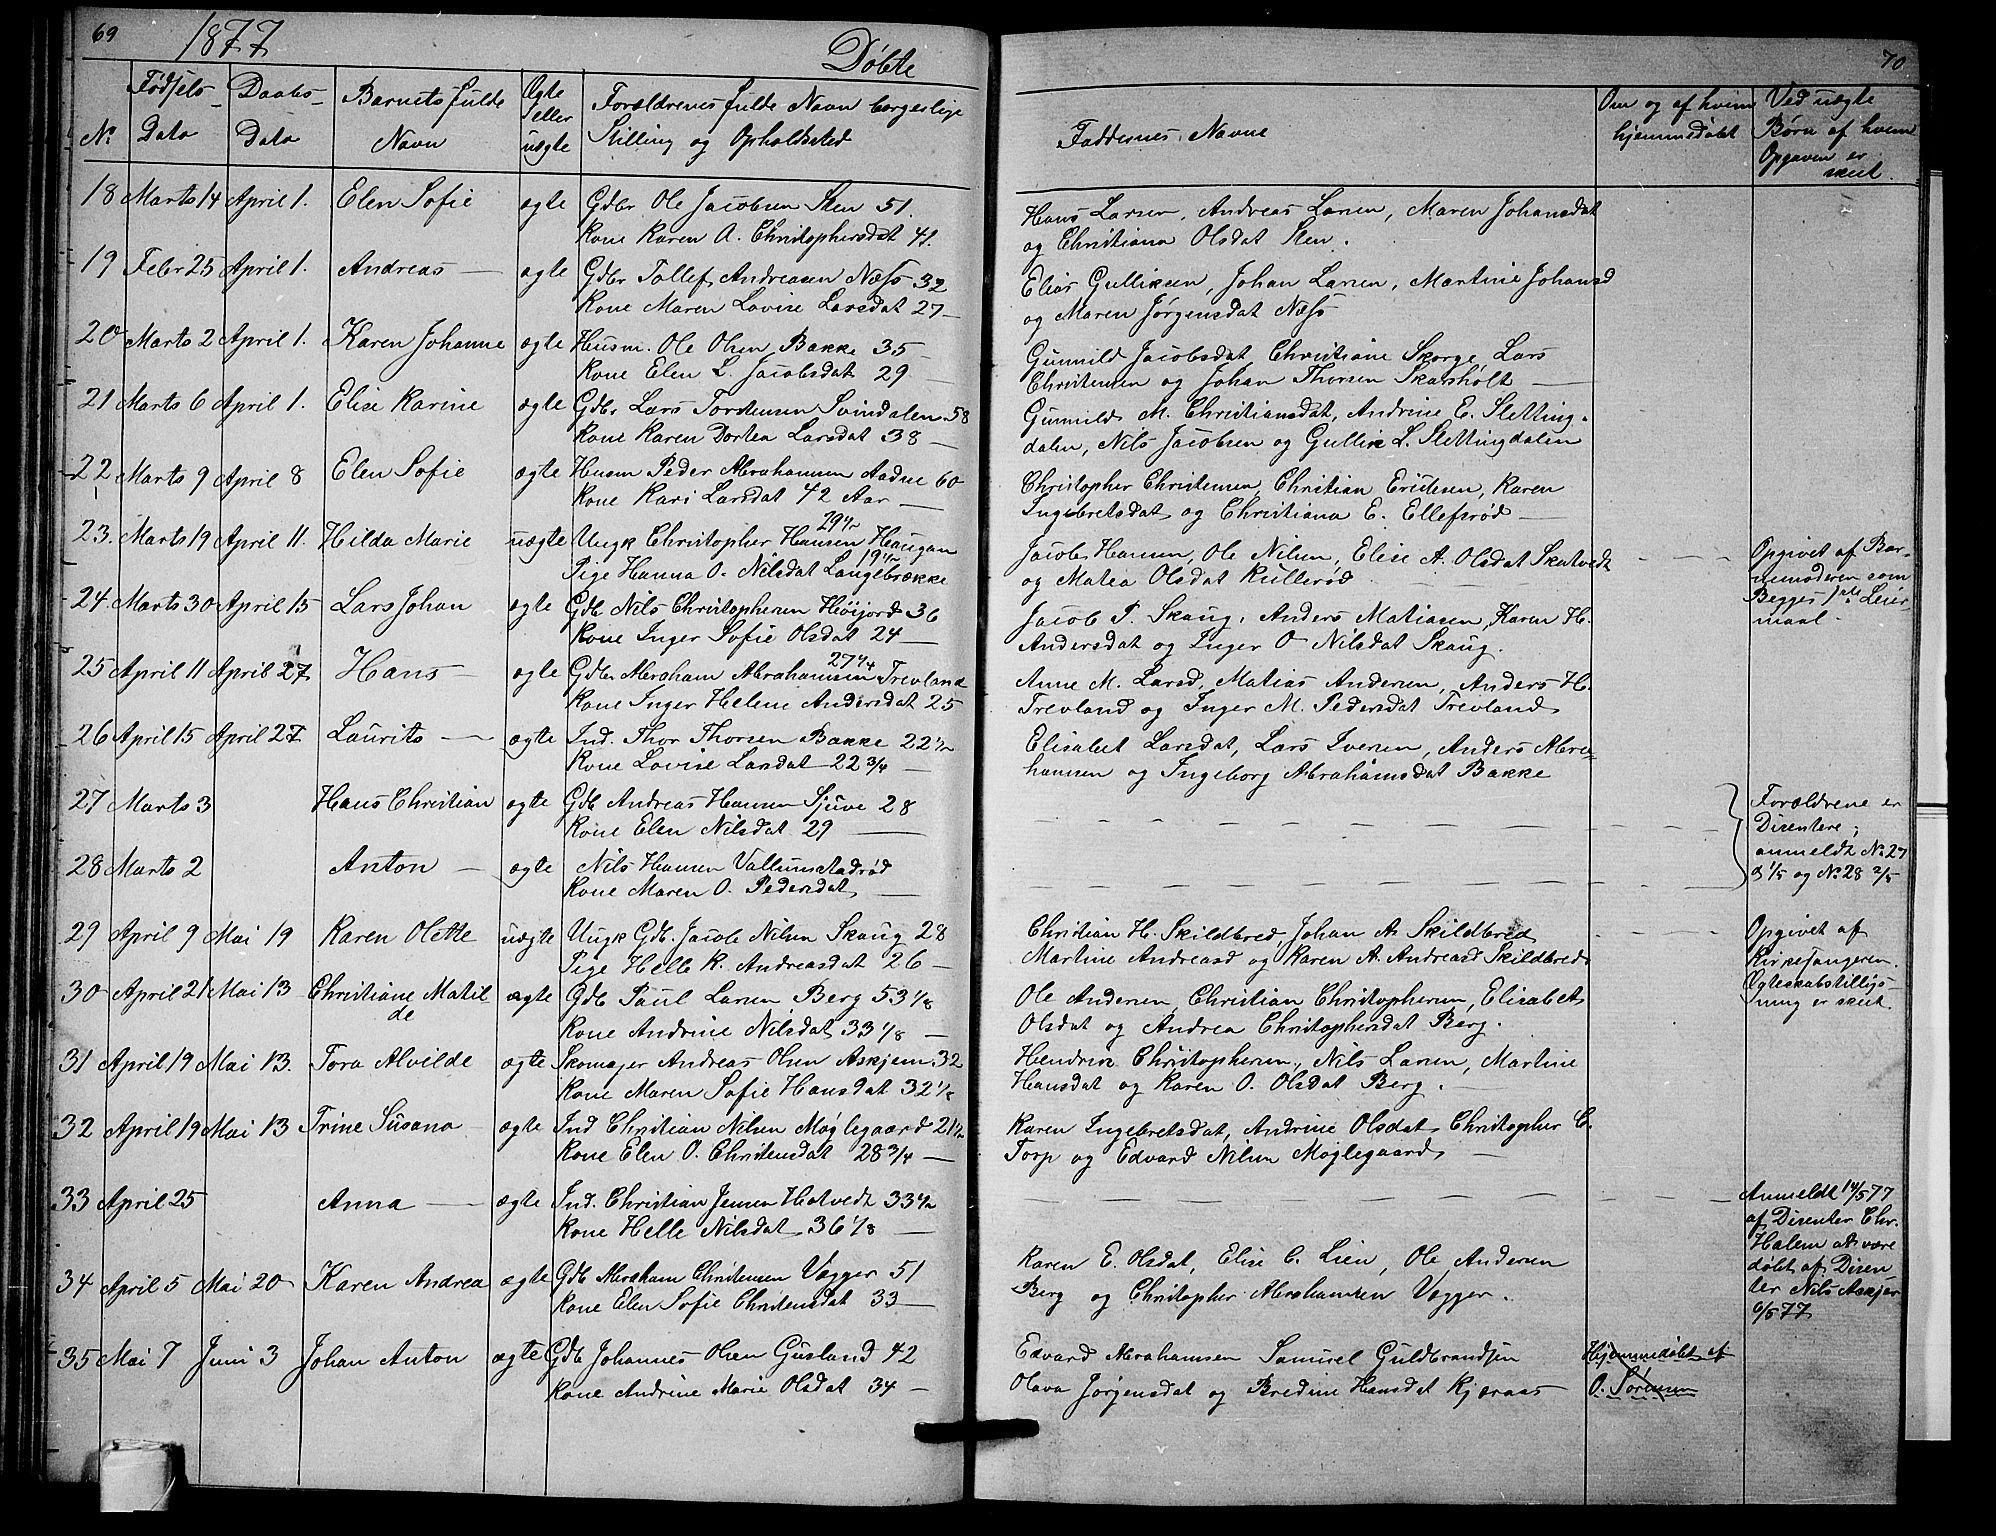 69
1877
Døbte
No
Fødsels-
Dato
Daabs-
Dato
Barnets fulde
Navn
Ægte
eller
uægte
Forældrenes fulde Navn borgerlige
Stilling og Opholdssted
18 Marts 14 April 1. Elen Sofie ægte Gdbr Ole Jacobsen Sten 51.
Kone Karen A. Christophersdat 41.
19 Febr 25 April 1. Andreas — ægte Gdbr Tollef Andreasen Næss 32
Kone Maren Lovise Larsdat 27 —
20 Marts 2 April 1. Karen Johanne ægte Husm. Ole Olsen Bakke 35 —
Kone Elen L. Jacobsdat 29 —
21 Marts 6 April 1. Elise Karine ægte Gdbr Lars Tordensen Svindalen 58
Kone Karen Dortea Larsdat 38 —
22 Marts 9 April 8 Elen Sofie ægte Husm Peder Abrahamsen Aadne 60
Kone Kari Larsdat 42 Aar —
23. Marts 19 April 11. Hilda Marie uægte Ungk Christopher Hansen 29 1/2 Haugan
Pige Hanna O. Nilsdat 19 1/2 Langebrække
24. Marts 30 April 15 Lars Johan ægte Gdb Nils Christophersen Høijord 36
Kone Inger Sofie Olsdat 24 —
25 April 11 April 27 Hans — ægte Gdbr Abraham Abrahamsen 27 1/4 Trevland
Kone Inger Helene Andersdat 25
26 April 15 April 27 Laurits — ægte Ind. Thor Thorsen Bakke 22 1/2
Kone Lovise Larsdat 22 3/4 —
27 Marts 3 Hans Christian ægte Gdb Andreas Hansen Sjuve 28
Kone Elen Nilsdat 29 —
28 Marts 2 Anton — ægte Nils Hansen Vallumstadrød
Kone Maren O. Pedersdat —
29 April 9 Mai 19 Karen Olette uægte Ungk Gdb. Jacob Nilsen Skaug 28
Pige Helle K. Andreasdat 26 —
30 April 21 Mai 13 Christiane Matil ægte Gdb Paul Larsen Berg 53 1/8
de Kone Andrine Nilsdat 33 1/8 —
31 April 19 Mai 13. Tora Alvilde ægte Skomager Andreas Olsen Askjem 32
Kone Maren Sofie Hansdat 32 1/8
32 April 19 Mai 13 Trine Susana — ægte Ind Christian Nilsen Møglegaard 21 1/2
Kone Elen O. Christensdat 28 3/4 —
33 April 25 Anna — ægte Ind. Christian Jensen Hotvedt 33 1/2
Kone Helle Nilsdat 36 1/8 —
34 April 5 Mai 20 Karen Andrea ægte Gdb Abraham Christensen Vegger 51
Kone Elen Sofie Christensdat 33 —
35 Mai 7 Juni 3 Johan Anton ægte Gdb Johannes Olsen Gusland 42
Kone Andrine Marie Olsdat 34 —
70
Faddernes Navne
Om og af hvem
hjemmedøbt
Ved uægte
Børn af hvem
Opgaven er
skeet.
Hans Larsen, Andreas Larsen, Maren Johansdat
og Christiana Olsdat Sten.
Elias Gulliksen, Johan Larsen, Martine Johansd
og Maren Jørgensdat Næss
Gunnild Jacobsdat, Christiane Skorge, Lars
Christensen og Johan Thorsen Skarsholt —
Gunnild M. Christiansdat, Andrine E. Sletting-
dalen, Nils Jacobsen og Gullik L. Slettingdalen
Christopher Christensen, Christian Eriksen, Karen
Ingebretsdat og Christiana E. Ellefsrød —
Jacob Hansen, Ole Nilsen, Elise A. Olsdat Skatvedt
og Matea Olsdat Kullerød
Opgivet af Bar-
nemoderen som
Begges 1ste Leier-
maal.
Jacob P. Skaug, Anders Matiasen, Karen H.
Andersdat og Inger O Nilsdat Skaug.
Anne M. Larsd, Matias Andersen, Anders H.
Trevland og Inger M. Pedersdat Trevland
Elisabet Larsdat, Lars Iversen, Anders Abra-
hamsen og Ingeborg Abrahamsdat Bakke
Forældrene er
Disentere;
anmeldt No 27
d 1/5 og No 28 2/5
Christian H. Skildbred, Johan A. Skildbred
Martine Andreasd og Karen A. Andreasd Skildbred
Opgivet af
Kirkesangeren.
Ægteskabstilligs-
ning er skeet.
Ole Andersen, Christian Christophersen, Elisabet
Olsdat og Andrea Christophersdat Berg.
Hendrik Christophersen, Nils Larsen, Martine
Hansdat og Karen O. Olsdat Berg.
Karen Ingebretsdat, Andrine Olsdat, Christopher C.
Torp og Edvard Nilsen Møglegaard —
Anmeldt 14/5 77
af Disenter Chr.
Holem at være
døbt af Disen
ter Nils Askjer
6/5 77
Karen E. Olsdat, Elise C. Lien, Ole Andersen
Berg og Christopher Abrahamsen Vegger.
Edvard Abrahamsen Samuel Guldbrandsen
Olava Jørgensdat og Bredine Hansdat Kjæraas
Hjemmedøbt af
O. Sørensen